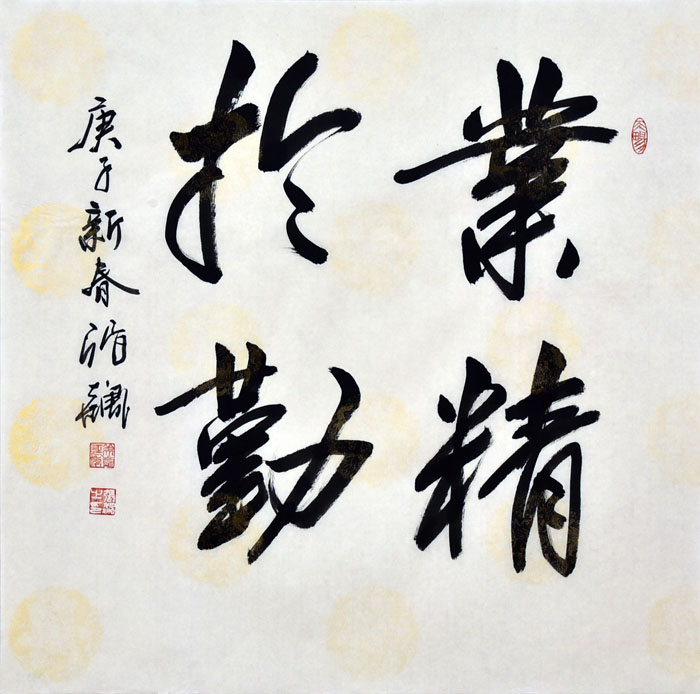 業精
於勤
庚子新春